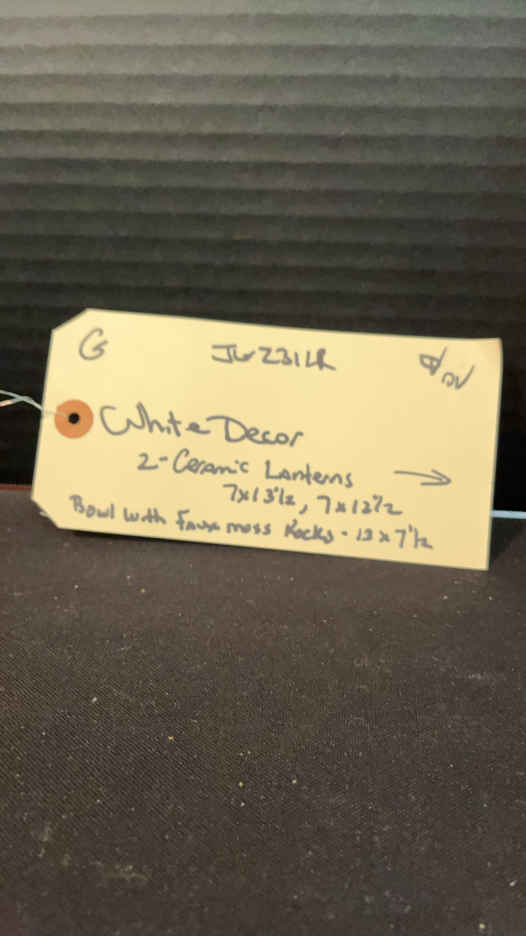 G JW231LR
White Decor
2-Ceramic Lanterns
7x13½, 7x12½
Bowl with Faux moss Rocks - 13 x 7½